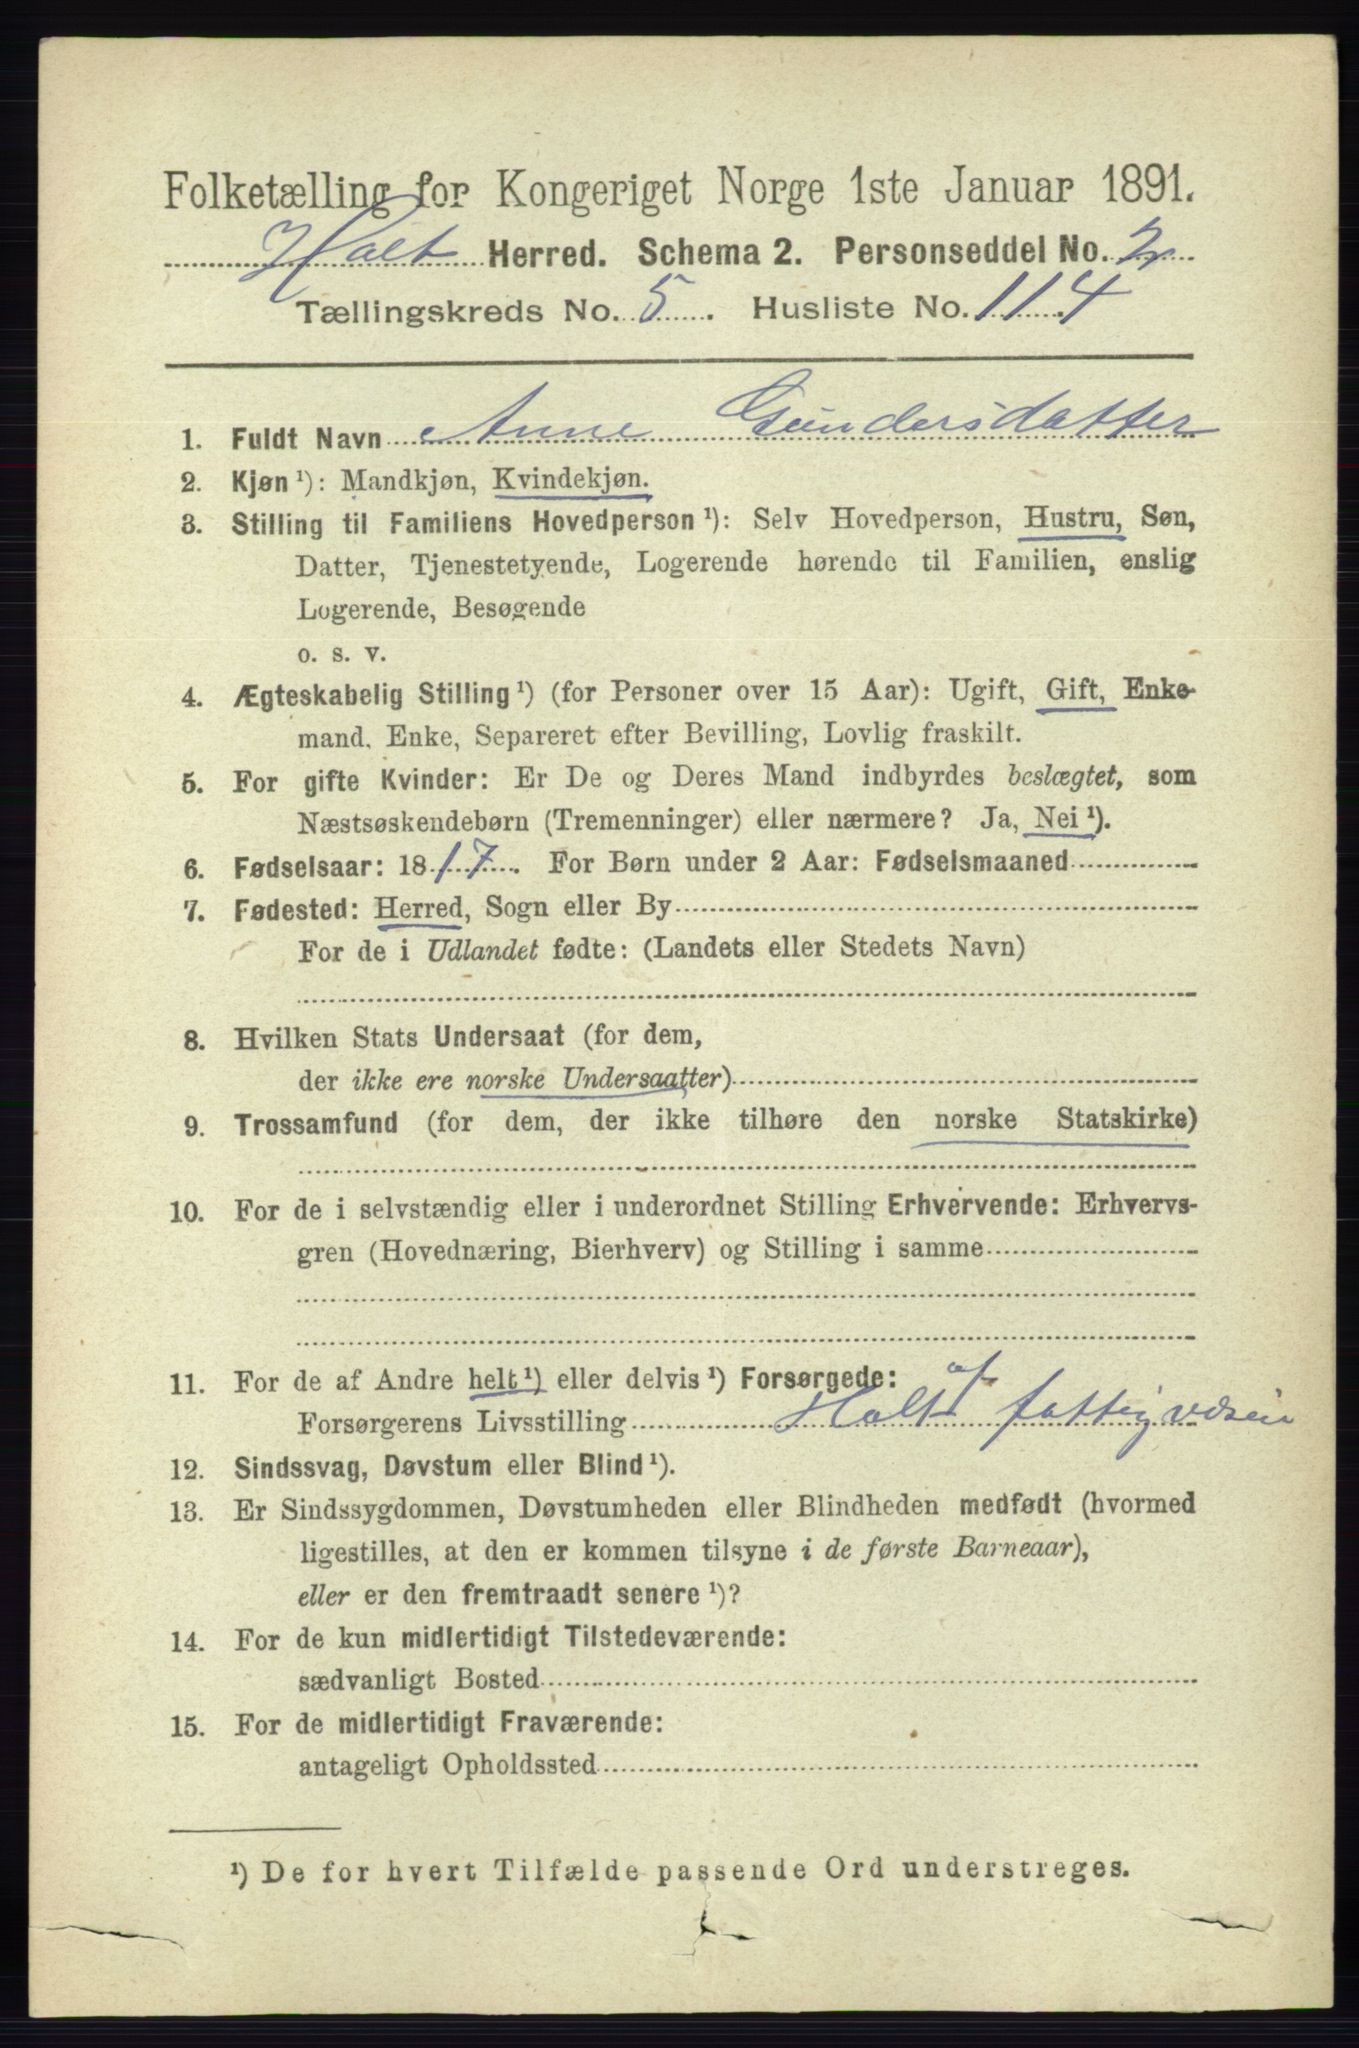 Folketælling for Kongeriget Norge 1ste Januar 1891.
Holt Herred. Schema 2. Personseddel No. 2
Tællingskreds No. 5. Husliste No. 114
1. Fuldt Navn Anne Gundersdatter
2. Kjøn ¹): Mandkjøn, Kvindekjøn.
3. Stilling til Familiens Hovedperson ¹): Selv Hovedperson, Hustru, Søn,
Datter, Tjenestetyende, Logerende hørende til Familien, enslig
Logerende, Besøgende
o. s. v.
4. Ægteskabelig Stilling ¹) (for Personer over 15 Aar): Ugift, Gift, Enke-
mand, Enke, Separeret efter Bevilling, Lovlig fraskilt.
5. For gifte Kvinder: Er De og Deres Mand indbyrdes beslægtet, som
Næstsøskendebørn (Tremenninger) eller nærmere? Ja, Nei ¹).
6. Fødselsaar: 1817. For Børn under 2 Aar: Fødselsmaaned
7. Fødested: Herred, Sogn eller By
For de i Udlandet fødte: (Landets eller Stedets Navn)
8. Hvilken Stats Undersaat (for dem,
der ikke ere norske Undersaatter)
9. Trossamfund (for dem, der ikke tilhøre den norske Statskirke)
10. For de i selvstændig eller i underordnet Stilling Erhvervende: Erhvervs-
gren (Hovednæring, Bierhverv) og Stilling i samme
11. For de af Andre helt ¹) eller delvis ¹) Forsørgede: af
Forsørgerens Livsstilling Holt fattigvæsen
12. Sindssvag, Døvstum eller Blind ¹).
13. Er Sindssygdommen, Døvstumheden eller Blindheden medfødt (hvormed
ligestilles, at den er kommen tilsyne i de første Barneaar),
eller er den fremtraadt senere ¹)?
14. For de kun midlertidigt Tilstedeværende:
sædvanligt Bosted
15. For de midlertidigt Fraværende:
antageligt Opholdssted
¹) De for hvert Tilfælde passende Ord understreges.